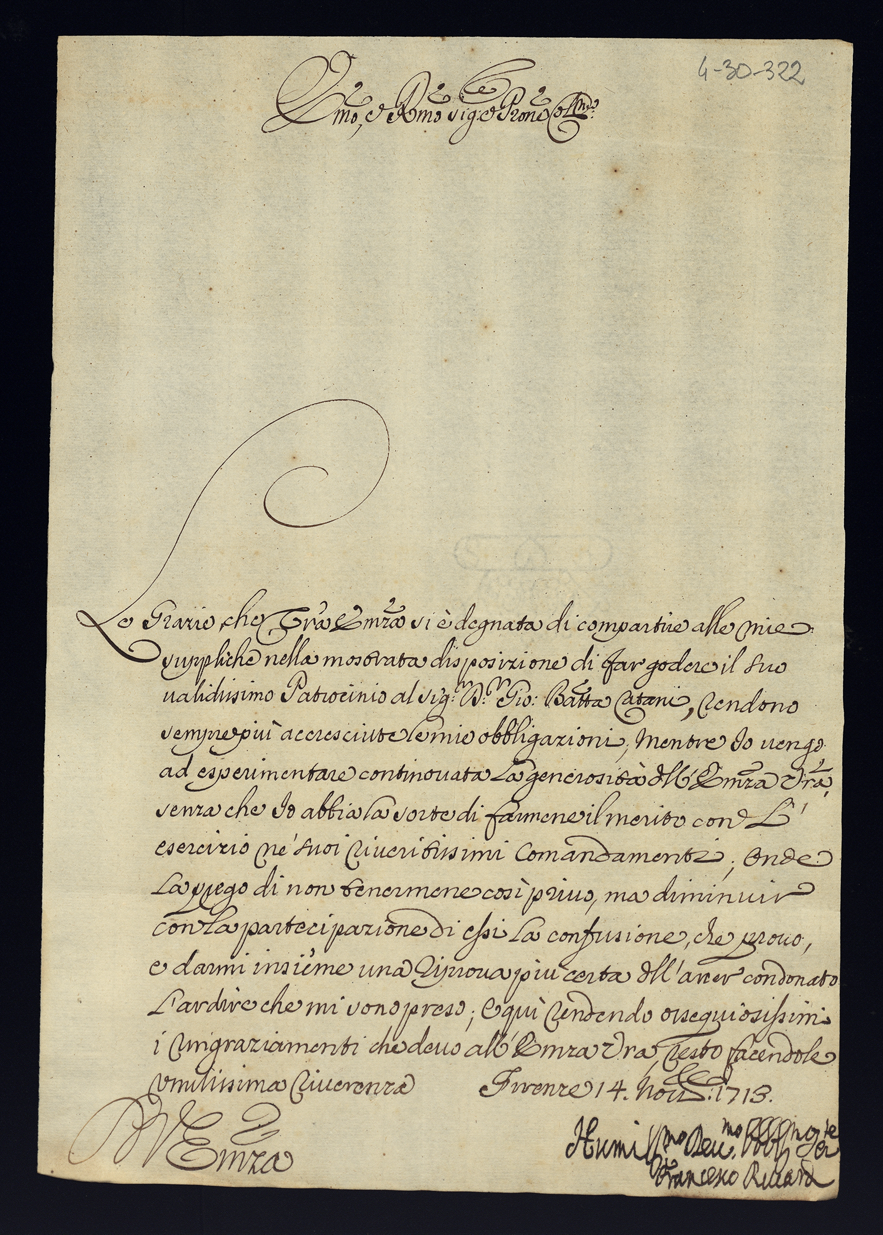 4-30-322
Emo, e Rmo Sig.re e Prone Collmo
Le Grazie, che Vra Emza si è degnata di compartire alle mie
suppliche nella mostrata disposizione di far godere il suo
validissimo Patrocinio al Sig.r D.r Gio: Batta Catani, rendono
sempre più accresciute le mie obbligazioni, mentre Io vengo
ad esperimentare continovata la generosità dell'Emza Vra,
senza che Io abbia la sorte di farmene il merito con L'
esercizio ne' suoi riveritissimi Comandamenti; Onde
La prego di non tenermene così privo, ma diminuir
con la partecipazione di essi la confusione, che provo,
e darmi insieme una riprova più certa dell'aver condonato
L'ardire che mi sono preso; e quì rendendo ossequiosissimi
i ringraziamenti che devo all'Emza Vra, resto facendole
umilissima riverenza Firenze 14. Nov.re 1713.
D V Emza
Humilissmo Devmo Obblmo Ser.re
Francesco Riccardi